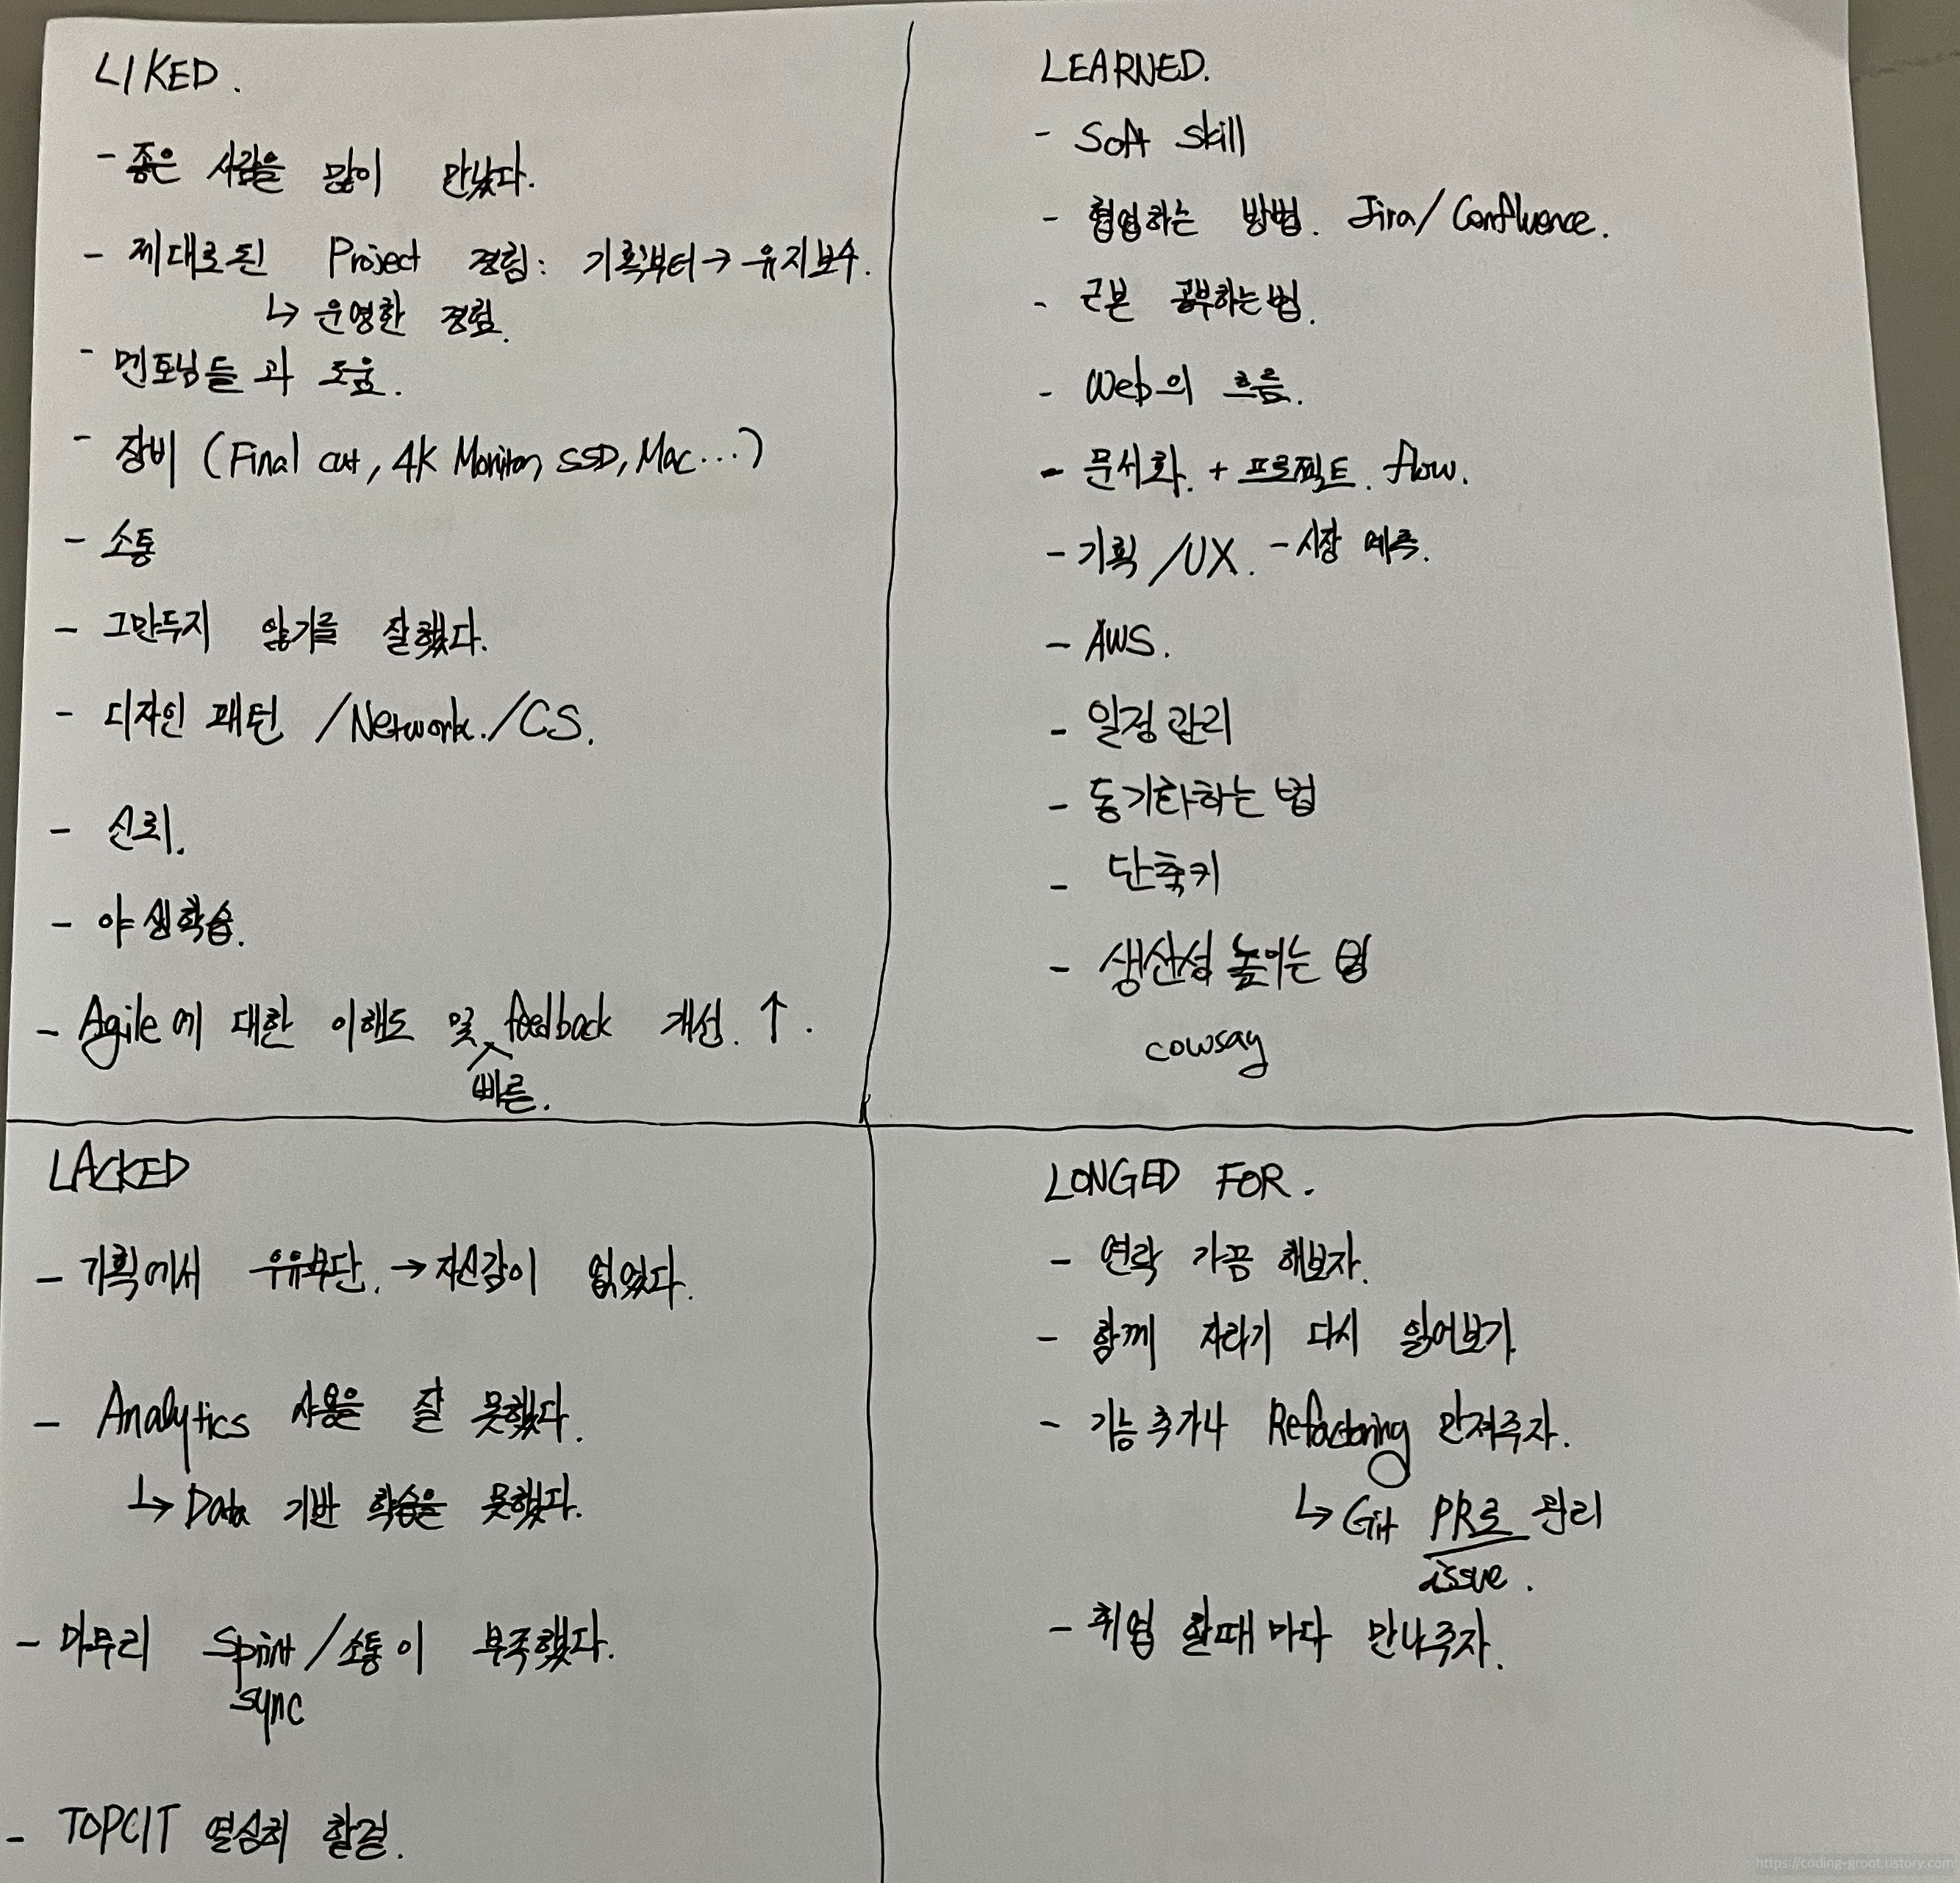 LIKED.
- 좋은 사람을 많이 만났다.
- 제대로된 Project 경험: 기획부터 → 유지보수.
↳ 운영한 경험.
- 멘토님들과 도움.
- 장비 (Final cut, 4K Monitor, SSD, Mac...)
- 소통
- 그만두지 않기를 잘했다.
- 디자인 패턴 /Network./CS.
- 신뢰.
- 야생학습.
- Agile에 대한 이해도 및 feedback 개선. ↑.
빠른.
LEARNED.
- Soft skill
- 협업하는 방법. Jira/Confluence.
- 근본 공부하는 법.
- Web의 흐름.
- 문서화. + 프로젝트. flow.
- 기획 /UX. - 시장 예측.
- AWS.
- 일정관리
- 동기화하는 법
- 단축키
- 생산성 높이는 법
cowsay
LACKED
- 기획에서 우유부단. → 자신감이 없었다.
- Analytics 사용을 잘 못했다.
↳ Data 기반 학습을 못했다.
- 마무리 Sprint /소통이 부족했다.
sync
- TOPCIT 열심히 할걸.
LONGED FOR.
- 연락 가끔 해보자.
- 함께 자라기 다시 읽어보기
- 기능추가나 Refactoring 만져주자.
↳ Git PR로 관리
issue.
- 취업 할때 마다 만나주자.
https://coding-groot.tistory.com